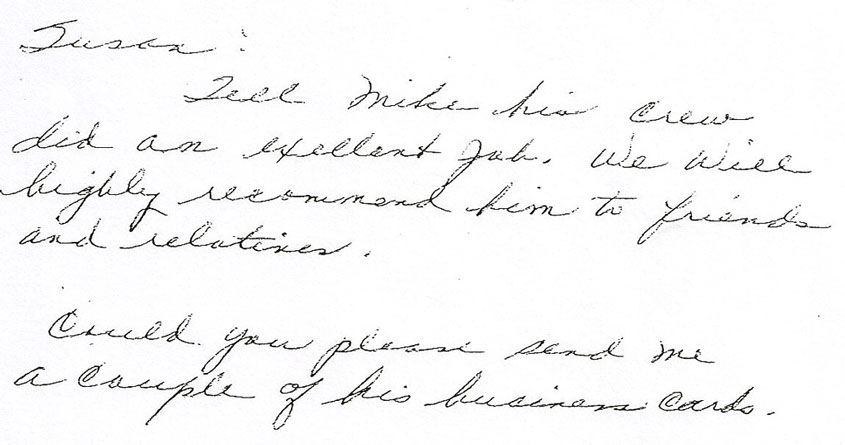 Susan:
Tell Mike his crew
did an exellent Job. We Will
highly recommend him to friends
and relatives.
Could you please send me
a couple of his business cards.